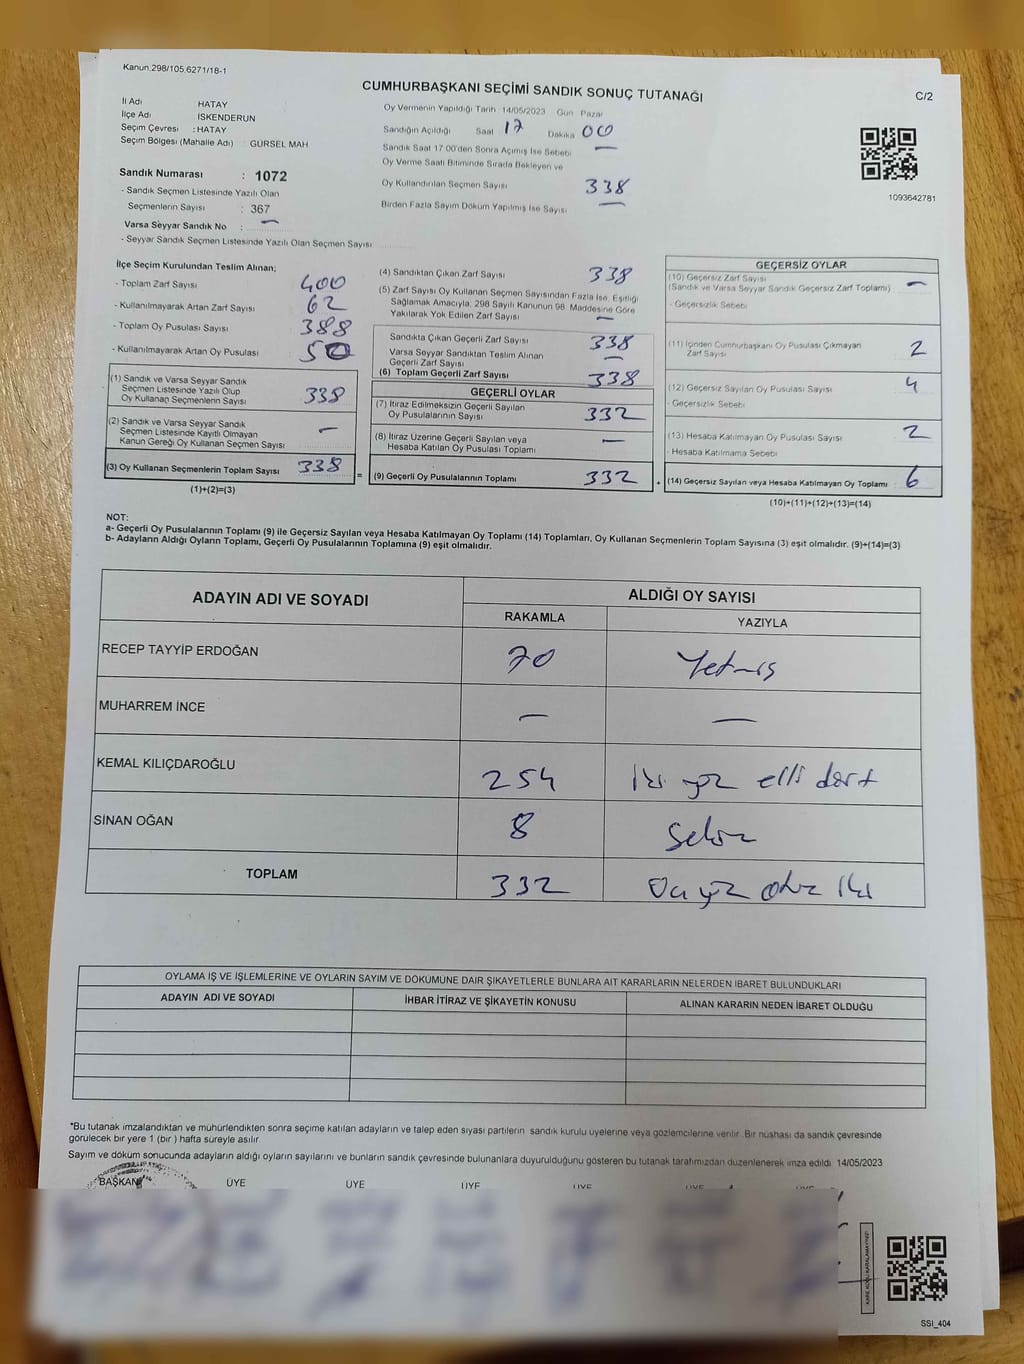 Kanun.298/105,6271/18-1
CUMHURBAŞKANI SEÇİMİ SANDIK SONUÇ TUTANAĞI
C/2
İl Adı HATAY
İlçe Adı İSKENDERUN
Seçim Çevresi : HATAY
Seçim Bölgesi (Mahalle Adı) : GÜRSEL MAH
Oy Vermenin Yapıldığı Tarih 14/05/2023 Gün Pazar
Sandığın Açıldığı Saat 17 Dakika 00
Sandık Saat 17:00'den Sonra Açımış İse Sebebi —
Oy Verme Saati Bitiminde Sırada Bekleyen ve
Oy Kullandırılan Seçmen Sayısı 338
Birden Fazla Sayım Döküm Yapılmış İse Sayısı —
1093642781
Sandık Numarası : 1072
- Sandık Seçmen Listesinde Yazılı Olan
Seçmenlerin Sayısı : 367
Varsa Seyyar Sandık No : —
- Seyyar Sandık Seçmen Listesinde Yazılı Olan Seçmen Sayısı:
İlçe Seçim Kurulundan Teslim Alınan;
- Toplam Zarf Sayısı 400
- Kullanılmayarak Artan Zarf Sayısı 62
- Toplam Oy Pusulası Sayısı 388
- Kullanılmayarak Artan Oy Pusulası 50
(1) Sandık ve Varsa Seyyar Sandık
Seçmen Listesinde Yazılı Olup
Oy Kullanan Seçmenlerin Sayısı 338
(2) Sandık ve Varsa Seyyar Sandık
Seçmen Listesinde Kayıtlı Olmayan
Kanun Gereği Oy Kullanan Seçmen Sayısı —
(3) Oy Kullanan Seçmenlerin Toplam Sayısı 338 =
(1)+(2)=(3)
(4) Sandıktan Çıkan Zarf Sayısı 338
(5) Zarf Sayısı Oy Kullanan Seçmen Sayısından Fazla İse, Eşitliği
Sağlamak Amacıyla, 298 Sayılı Kanunun 98. Maddesine Göre
Yakılarak Yok Edilen Zarf Sayısı —
Sandıkta Çıkan Geçerli Zarf Sayısı 338
Varsa Seyyar Sandıktan Teslim Alınan
Geçerli Zarf Sayısı —
(6) Toplam Geçerli Zarf Sayısı 338
GEÇERLİ OYLAR
(7) İtiraz Edilmeksizin Geçerli Sayılan
Oy Pusulalarının Sayısı 332
(8) İtiraz Üzerine Geçerli Sayılan veya
Hesaba Katılan Oy Pusulası Toplamı —
(9) Geçerli Oy Pusulalarının Toplamı 332 +
GEÇERSİZ OYLAR
(10) Geçersiz Zarf Sayısı
(Sandık ve Varsa Seyyar Sandık Geçersiz Zarf Toplamı) —
- Geçersizlik Sebebi
(11) İçinden Cumhurbaşkanı Oy Pusulası Çıkmayan
Zarf Sayısı 2
(12) Geçersiz Sayılan Oy Pusulası Sayısı 4
- Geçersizlik Sebebi
(13) Hesaba Katılmayan Oy Pusulası Sayısı 2
- Hesaba Katılmama Sebebi
(14) Geçersiz Sayılan veya Hesaba Katılmayan Oy Toplamı : 6
(10)+(11)+(12)+(13)=(14)
NOT:
a- Geçerli Oy Pusulalarının Toplamı (9) ile Geçersiz Sayılan veya Hesaba Katılmayan Oy Toplamı (14) Toplamları, Oy Kullanan Seçmenlerin Toplam Sayısına (3) eşit olmalıdır. (9)+(14)=(3)
b- Adayların Aldığı Oyların Toplamı, Geçerli Oy Pusulalarının Toplamına (9) eşit olmalıdır.
ADAYIN ADI VE SOYADI ALDIĞI OY SAYISI
RAKAMLA YAZIYLA
RECEP TAYYİP ERDOĞAN 70 Yetmiş
MUHARREM İNCE — —
KEMAL KILIÇDAROĞLU 254 iki yüz elli dört
SİNAN OĞAN 8 Sekiz
TOPLAM 332 Üç yüz otuz iki
OYLAMA İŞ VE İŞLEMLERİNE VE OYLARIN SAYIM VE DÖKÜMÜNE DAİR ŞİKAYETLERLE BUNLARA AİT KARARLARIN NELERDEN İBARET BULUNDUKLARI
ADAYIN ADI VE SOYADI İHBAR İTİRAZ VE ŞİKAYETİN KONUSU ALINAN KARARIN NEDEN İBARET OLDUĞU
*Bu tutanak imzalandıktan ve mühürlendikten sonra seçime katılan adayların ve talep eden siyasi partilerin sandık kurulu üyelerine veya gözlemcilerine verilir. Bir nüshası da sandık çevresinde
görülecek bir yere 1 (bir ) hafta süreyle asılır
Sayım ve döküm sonucunda adayların aldığı oyların sayılarını ve bunların sandık çevresinde bulunanlara duyurulduğunu gösteren bu tutanak tarafımızdan düzenlenerek imza edildi. 14/05/2023
BAŞKAN ÜYE ÜYE ÜYE ÜYE ÜYE ÜYE
KARE KODU KARALAMAYINIZ!
SSI_404